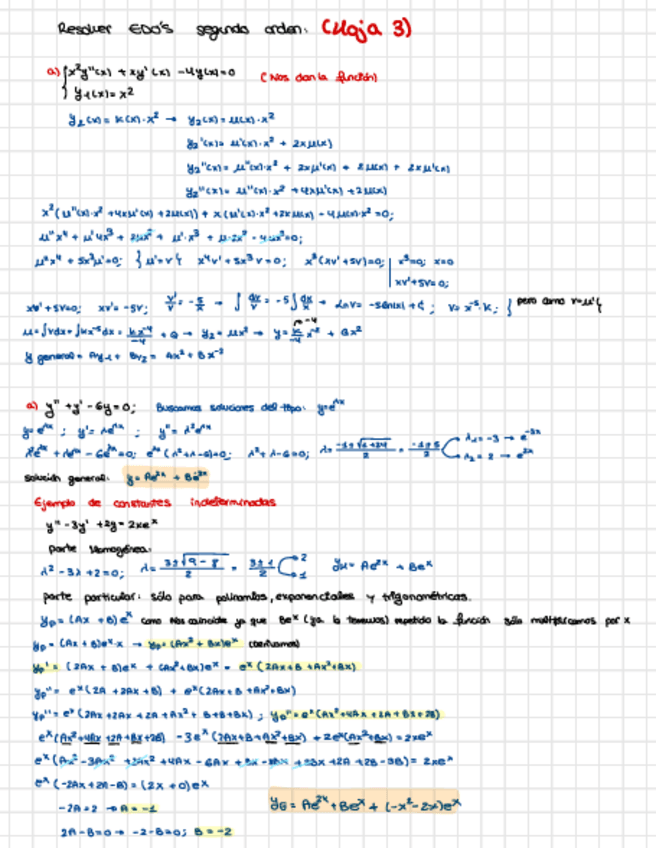 Resolver EDO'S segundo orden: (Hoja 3)
a) { x²y''(x) + xy'(x) - 4y(x) = 0 (Nos dan la función)
y₁(x) = x²
y₂(x) = K(x)·x² → y₂(x) = μ(x)·x²
y₂'(x) = μ'(x)·x² + 2xμ(x)
y₂''(x) = μ''(x)·x² + 2xμ'(x) + 2μ(x) + 2xμ'(x)
y₂''(x) = μ''(x)·x² + 4xμ'(x) + 2μ(x)
x²(μ''(x)·x² + 4xμ'(x) + 2μ(x)) + x(μ'(x)·x² + 2xμ(x)) - 4μ(x)·x² = 0;
μ''x⁴ + μ'4x³ + 2μx² + μ'·x³ + μ·2x² - 4μx² = 0;
μ''x⁴ + 5x³μ' = 0; { μ' = v } x⁴v' + 5x³v = 0; x³(xv' + 5v) = 0; | x³ = 0; x = 0
xv' + 5v = 0;
xv' + 5v = 0; xv' = -5v; v'/v = -5/x → ∫ dv/v = -5 ∫ dx/x → Lnv = -5ln|x| + C; v = x⁻⁵·K; } pero como v = μ' {
μ = ∫vdx = ∫Kx⁻⁵dx = Kx⁻⁴/-4 + Q → y₂ = μx² → y = K/-4 x⁻² + Qx²
y general = Ay₁ + By₂ = Ax² + Bx⁻²
a) y'' + y' - 6y = 0; Buscamos soluciones del tipo: y = e^λx
y = e^λx ; y' = λe^λx ; y'' = λ²e^λx
λ²e^λx + λe^λx - 6e^λx = 0; e^λx(λ² + λ - 6) = 0; λ² + λ - 6 = 0; λ = (-1±√1+24)/2 = (-1±5)/2 λ₁ = -3 → e^-3x
λ₂ = 2 → e^2x
solución general: y = Ae^2x + Be^-3x
Ejemplo de constantes indeterminadas
y'' - 3y' + 2y = 2xe^x
parte homogénea:
λ² - 3λ + 2 = 0; λ = (3±√9-8)/2 = (3±1)/2 2 1 yH = Ae^2x + Be^x
parte particular: sólo para polinomios, exponenciales y trigonométricas.
yp = (Ax + B)e^x como nos coincide ya que Be^x (ya lo tenemos) repetido la función sólo multiplicamos por x
yp = (Ax + B)e^x·x → yp = (Ax² + Bx)e^x (derivamos)
yp' = (2Ax + B)e^x + (Ax² + Bx)e^x = e^x(2Ax + B + Ax² + Bx)
yp'' = e^x(2A + 2Ax + B) + e^x(2Ax + B + Ax² + Bx)
yp'' = e^x(2Ax + 2Ax + 2A + Ax² + B + B + Bx) ; yp'' = e^x(Ax² + 4Ax + 2A + Bx + 2B)
e^x(Ax² + 4Ax + 2A + Bx + 2B) - 3e^x(2Ax + B + Ax² + Bx) + 2e^x(Ax² + Bx) = 2xe^x
e^x(Ax² - 3Ax² + 2Ax² + 4Ax - 6Ax + Bx - 3Bx + 2Bx + 2A + 2B - 3B) = 2xe^x
e^x(-2Ax + 2A - B) = (2x + 0)e^x
-2A = 2 → A = -1
2A - B = 0 → -2 - B = 0; B = -2
yG = Ae^2x + Be^x + (-x² - 2x)e^x